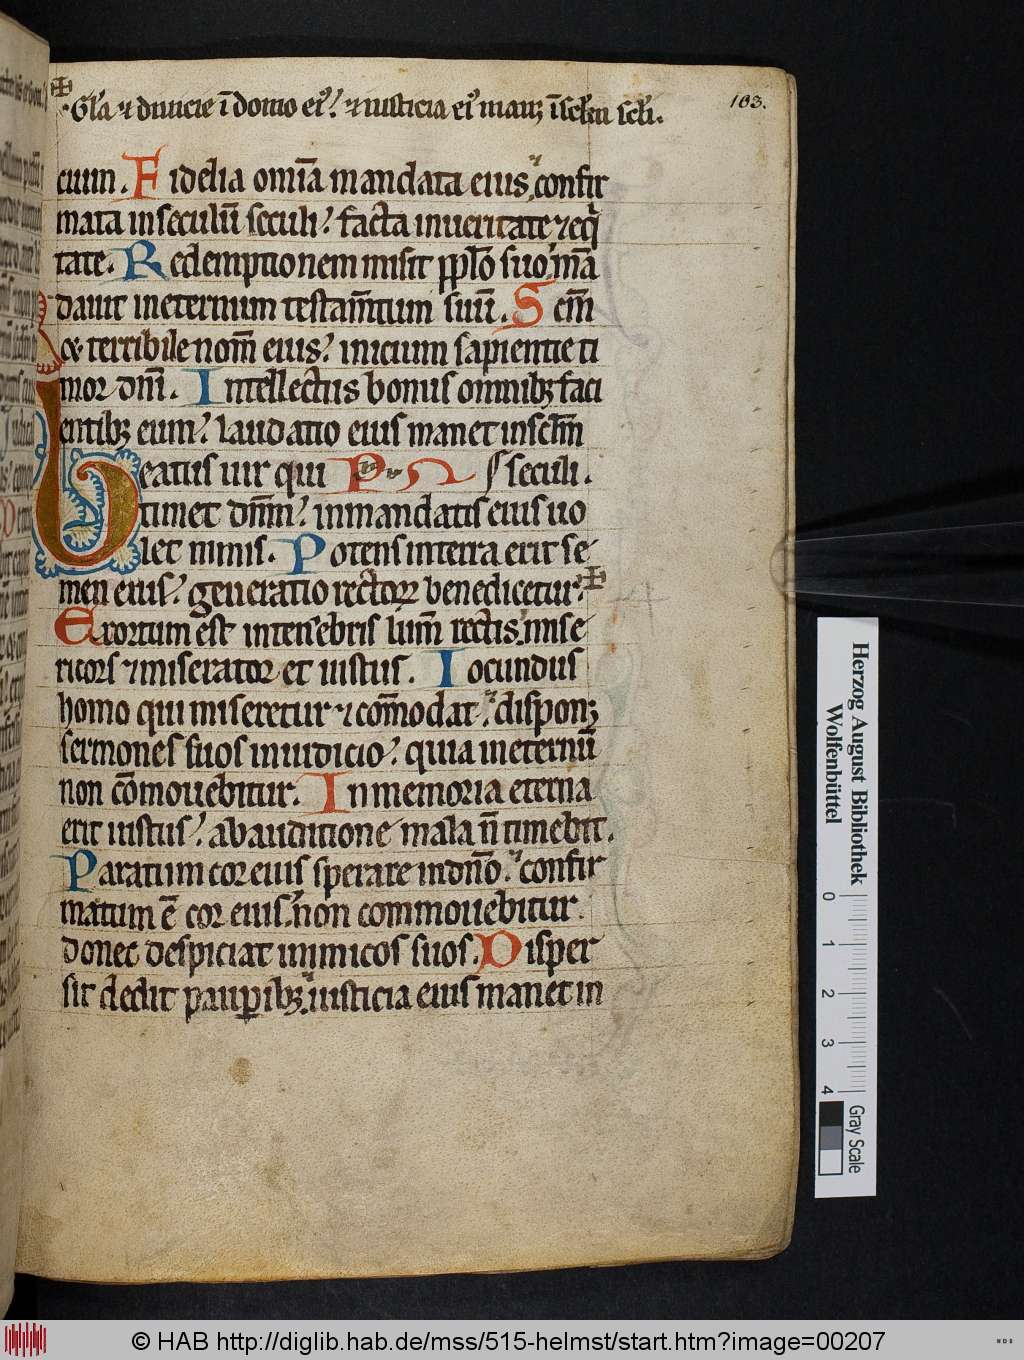 Gl̄a ⁊ diuicie ī domo ei᷒ ⁊ iusticia ei᷒ man; ī sc̄lm sc̄li.
103.
cuum. Fidelia om̄ia mandata eius, confir
mata in seculū seculi? facta in ueritate ⁊ eq̄
tate. Redemptionem misit pplo suo, mā
dauit in eternum testam̄tum suū. Scm̄
& terribile nom̄ eius? inicium sapientie ti
mor dn̄i. Intellectus bonus omnib; faci
entib; eum? laudatio eius manet in sclm̄
Beatus uir qui seculi.
timet dn̄m? in mandatis eius uo
let nimis. Potens in terra erit se
men eius? generatio rectoꝝ benedicetur?
Exortum est in tenebris lum̄ rectis, mise
ricors ⁊ miserator et iustus. Iocundus
homo qui miseretur ⁊ com̄odat, dispon;
sermones suos in iudicio? quia in eternū
non cōmouebitur. In memoria eterna
erit iustus? ab auditione mala n̄ timebit.
Paratum cor eius sperare in dn̄o? confir
matum ē cor eius, non commouebitur
donec despiciat inimicos suos. Disper
sit dedit paup̱ib; iusticia eius manet in
Herzog August Bibliothek
Wolfenbüttel
0 1 2 3 4
Gray Scale
© HAB http://diglib.hab.de/mss/515-helmst/start.htm?image=00207